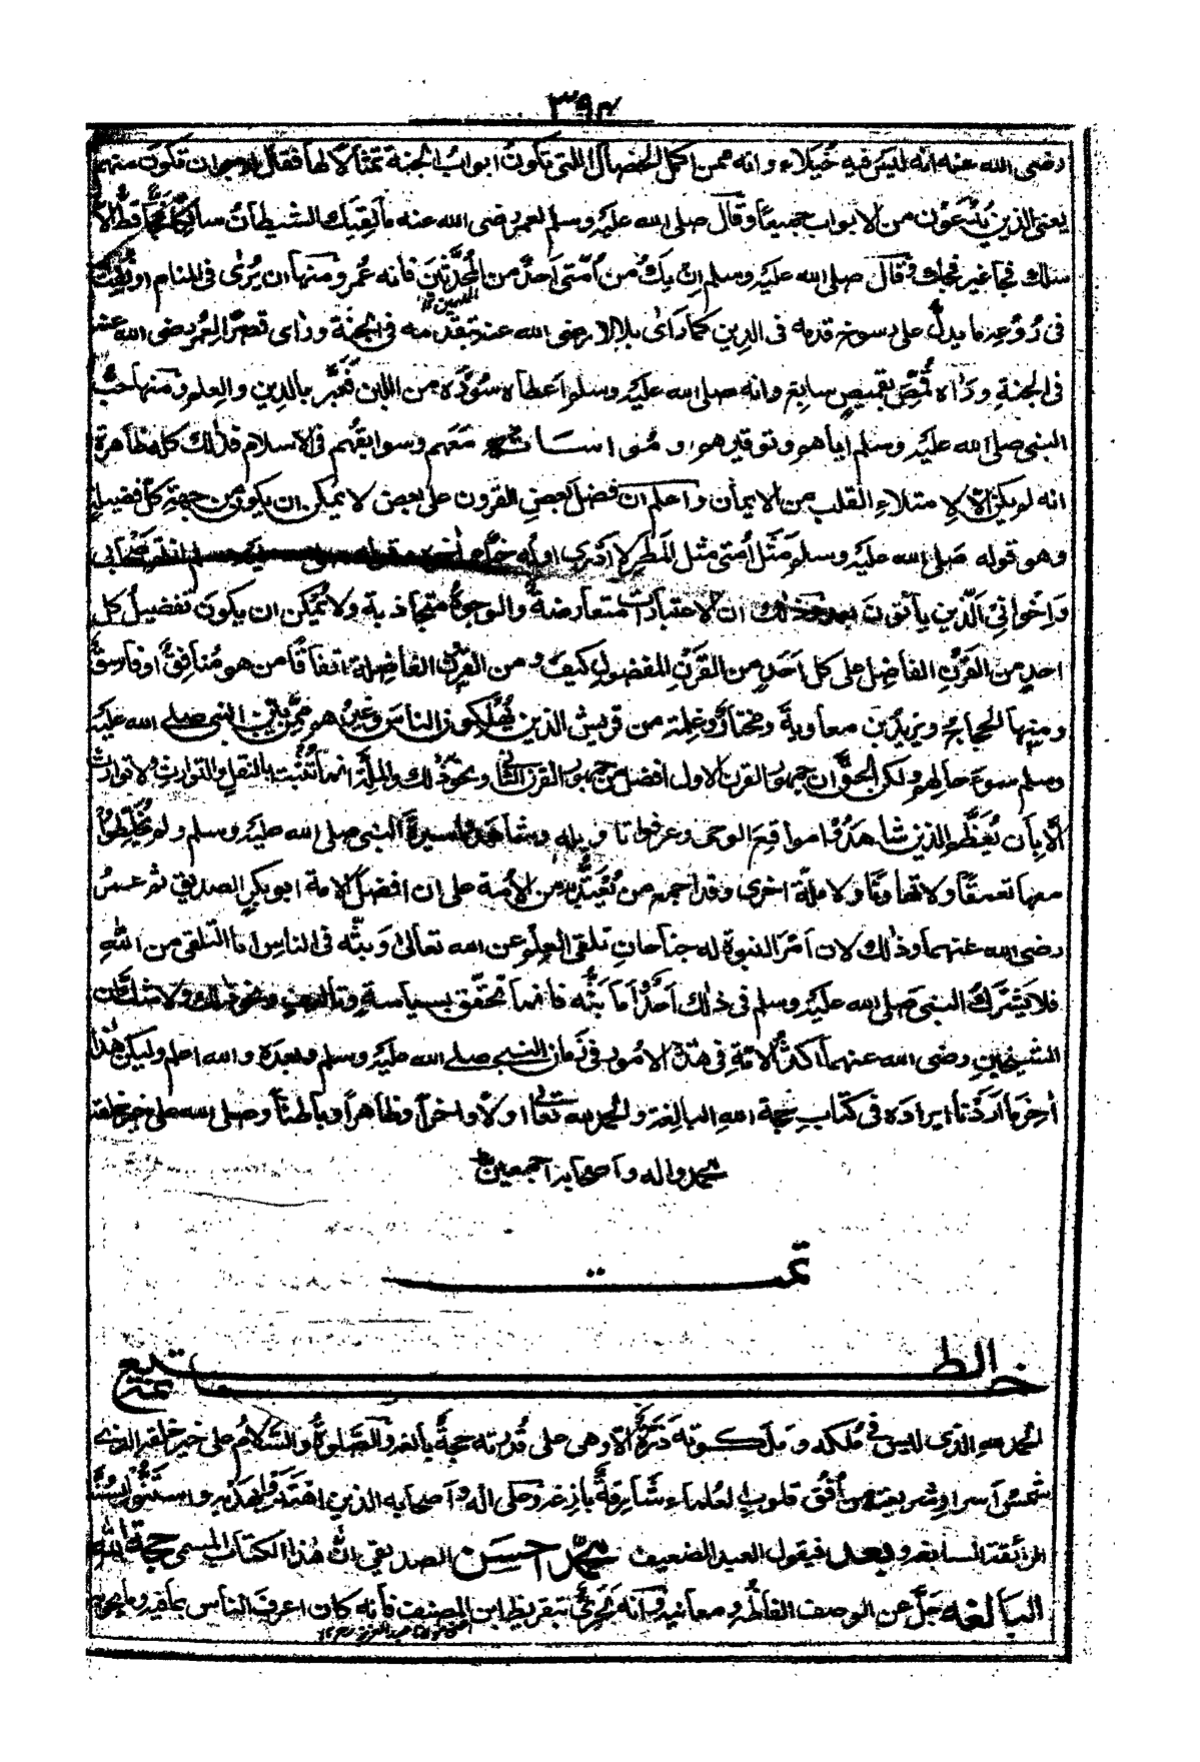 ٣٩٤
رضى الله عنه انه ليس فيه خُيَلاء وانه ممن اكمل الخصال التى تكونُ ابوابُ الجنة تمثالًا لها فقال ارجو ان تكون منهم
يعنى الذين يُدْعَوْن من الابواب جميعًا وقال صلى الله عليه وسلم لعمر رضى الله عنه ما لقيك الشيطان سالكًا فجًّا قطُّ الا
سلك فجا غير فجك وقال صلى الله عليه وسلم ان يك من اُمتى احدٌ من المُحدَّثين فانه عُمر ومنها ان يُرٰى فى المنام او
الملهمين
فى رُوْعه ما يدل على رسوخ قدمه فى الدين كما رَاٰى بلالا رضى الله عنه تقدمه فى الجنة ورٰاى قصرًا لعُمر رضى الله عنه
فى الجنةِ ورٰاه قُمِّصَ بقميصٍ سابغٍ وانه صلى الله عليه وسلم اعطاه سُؤْرَه من اللبن فعَبَّر بالدين والعلم ومنها حبُّ
النبى صلى الله عليه وسلم اياهم وتوقيرهم ومُواساتُه معهم وسوابقُهم فى الاسلام فذلك كله ظاهرة
انه لم يكن الا لامتلاءِ القلب من الايمان واعلم ان فضل بعض القرون على بعض لا يمكن ان يكون من جهةِ كل فضيلةٍ
وهو قوله صلى الله عليه وسلم مَثَل اُمتى مثل المطر لا اَدْرى اوله خيرٌ ام اٰخره وقوله صلى الله عليه وسلم انتم اصحابى
واخوانىَ الَّذين يأتون بعد وذلك ان الاعتبارات متعارضةٌ والوجوهُ متجاذبة ولا يُمكن ان يكونَ تفضيل كل
احدٍ من القرنِ الفاضِل على كل احدٍ من القَرنِ المفضول كيف ومن القرون الفاضِلة اتفاقًا من هو مُنافقٌ او فاسقٌ
ومنها الحجاج ويزيدُ بن معاوية ومختارٌ وغِلمة من قريش الذين يُهْلكون الناس وغيرُهم ممن بيّن النبى صلى الله عليه
وسلم سوءَ حالهم ولكن الحقَّ ان جمهور القرن الاول افضل من جمهور القرن الثانى ونحو ذلك والملَّة انما تُثْبَت بالنقل والتوارث ولا توارث
الا بان يُعظَّم الذين شاهَدُوا مواقع الوحى وعرفوا تاويله وشاهدوا سيرةَ النبى صلى الله عليه وسلم ولم يَخْلِطوا
معها تعمقًا ولا تهاونًا ولا ملّة اخرى وقد اجمع من يُعْتَدُّ به من الأمة على ان افضل الامة ابوبكرٍ الصديق ثم عمرُ
رضى الله عنهما وذلك لان اَمْرَ النبوة له جناحانِ تلقى العلمِ عن الله تعالى وبثُّه فى الناس اما التلقى من اللهِ
فلا يَشْرَكُ النبى صلى الله عليه وسلم فى ذلك اَحَدٌ واما بَثُّه فانما تحقق بسياسةٍ وتأليفٍ ونحو ذلك ولا شك ان
الشيخين رضى الله عنهما اكثرُ الامةِ فى هذه الامور فى زمان النبى صلى الله عليه وسلم وبعده والله اعلم وليكن هٰذا
اٰخِرَ ما اَرَدْنا ايرادَه فى كتابِ حجة اللهِ البالغة والحمد لله تعالٰى اولًا واٰخرًا وظاهرًا وباطنًا وصلى الله على خير خلقه
محمد واٰله واصحابه اجمعين
تمت
خاتمة الطبع
الحمد لله الذى ليس فى مُلكه وملكوته ذَرَّةٌ الا وهى على قُدرته حجةٌ بالغة والصلوةُ والسَّلامُ على خير خلقه الذى
شمسُ اَسرارِ شريعته من اُفُق قلوبِ العُلماءِ شارقةٌ بازغة وعلى اٰله واصحابه الذين اقتدوا بهديه واستنُّوا بسُنَّته
الرائقة السابغة وبعد فيقول العبد الضعيف محمد احسن الصديقى انَّ هٰذا الكتاب المسمى حجة الله
البالغة جلَّ عن الوصف الفاظُه ومعانيه وانه حَرِىٌّ بتقريظ ابن المصنف فانه كان اعرفَ الناس بما فيه وما يحويه
اعنى مولانا عبد العزيز